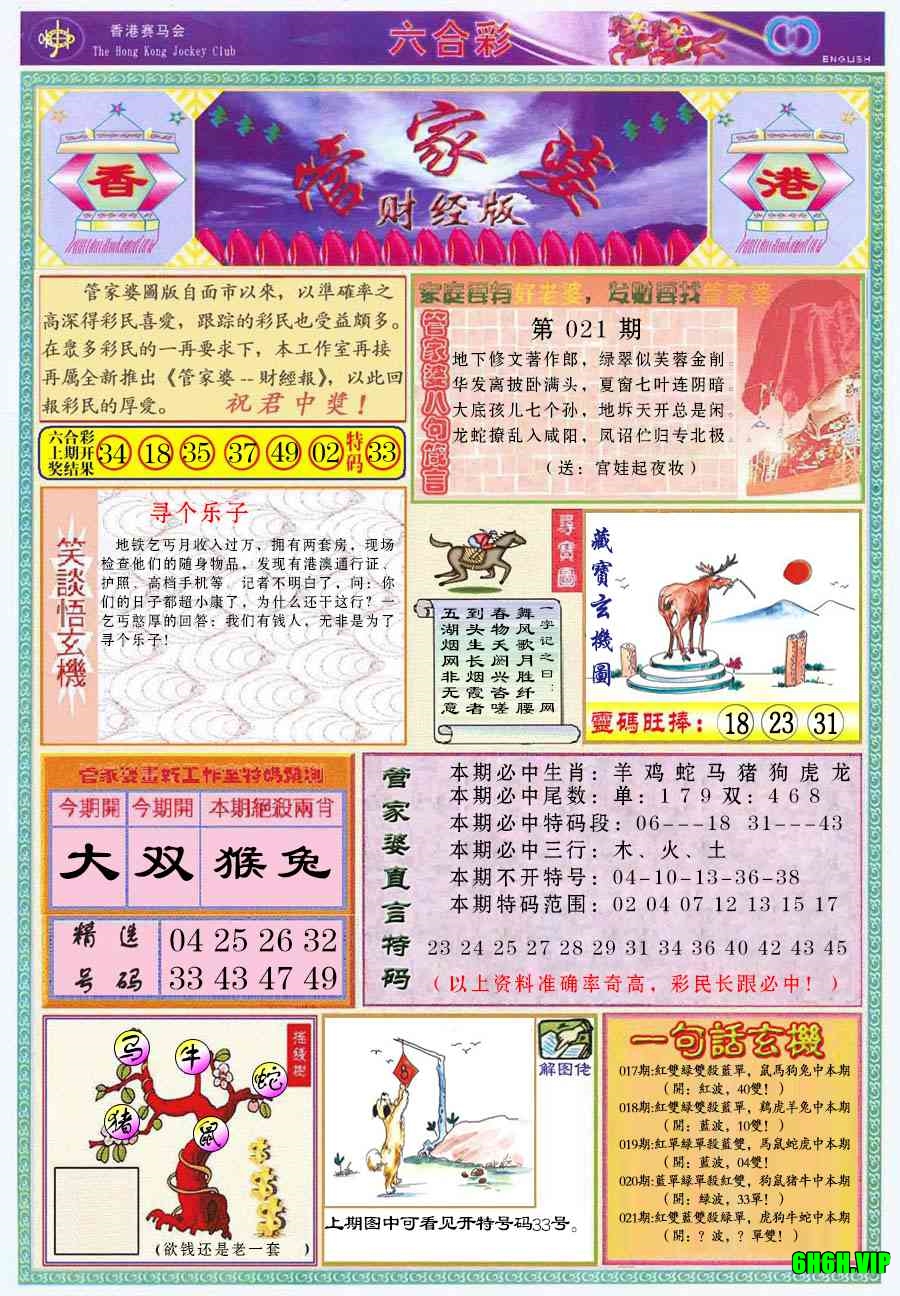 香港赛马会
The Hong Kong Jockey Club
六合彩
ENGLISH
香
管家婆
财经版
港
管家婆圖版自面市以來，以準確率之
高深得彩民喜愛，跟踪的彩民也受益頗多。
在眾多彩民的一再要求下，本工作室再接
再厲全新推出《管家婆--財經報》，以此回
報彩民的厚愛。 祝君中獎！
六合彩
上期开
奖结果
34 18 35 37 49 02 特码 33
家庭要有好老婆，发财要找管家婆
管家婆八句箴言
第 021 期
地下修文著作郎，绿翠似芙蓉金削。
华发离披卧满头，夏窗七叶连阴暗。
大底孩儿七个孙，地坼天开总是闲。
龙蛇撩乱入咸阳，凤诏伫归专北极。
（送：宫娃起夜妆）
笑談悟玄機
寻个乐子
地铁乞丐月收入过万，拥有两套房，现场
检查他们的随身物品，发现有港澳通行证、
护照、高档手机等，记者不明白了，问：你
们的日子都超小康了，为什么还干这行？一
乞丐憨厚的回答：我们有钱人，无非是为了
寻个乐子！
尋寶圖
一字记之曰：网
舞风歌月胜纤腰
春物天阏兴咨嗟
到头生长烟霞者
五湖烟网非无意
藏寶玄機圖
靈碼旺捧：18 23 31
管家婆畫新工作室特碼預測
今期開 今期開 本期絕殺兩肖
大 双 猴兔
精选
号码
04 25 26 32
33 43 47 49
管家婆直言特码
本期必中生肖：羊鸡蛇马猪狗虎龙
本期必中尾数：单：179双：468
本期必中特码段：06---18 31---43
本期必中三行：木、火、土
本期不开特号：04-10-13-36-38
本期特码范围：02 04 07 12 13 15 17
23 24 25 27 28 29 31 34 36 40 42 43 45
（以上资料准确率奇高，彩民长跟必中！）
摇钱樹
马
牛
蛇
猪
鼠
（欲钱还是老一套 ）
解图佬
上期图中可看见开特号码33号。
一句話玄機
017期:紅雙緑雙殺藍單，鼠馬狗兔中本期
（開：紅波，40雙！）
018期:紅雙緑雙殺藍單，鷄虎羊兔中本期
（開：藍波，10雙！）
019期:紅單緑單殺藍雙，馬鼠蛇虎中本期
（開：藍波，04雙！
020期:藍單緑單殺紅雙，狗鼠猪牛中本期
（開：緑波，33單！）
021期:紅雙藍雙殺緑單，虎狗牛蛇中本期
（開：？波，？單雙！）
6H6H.VIP